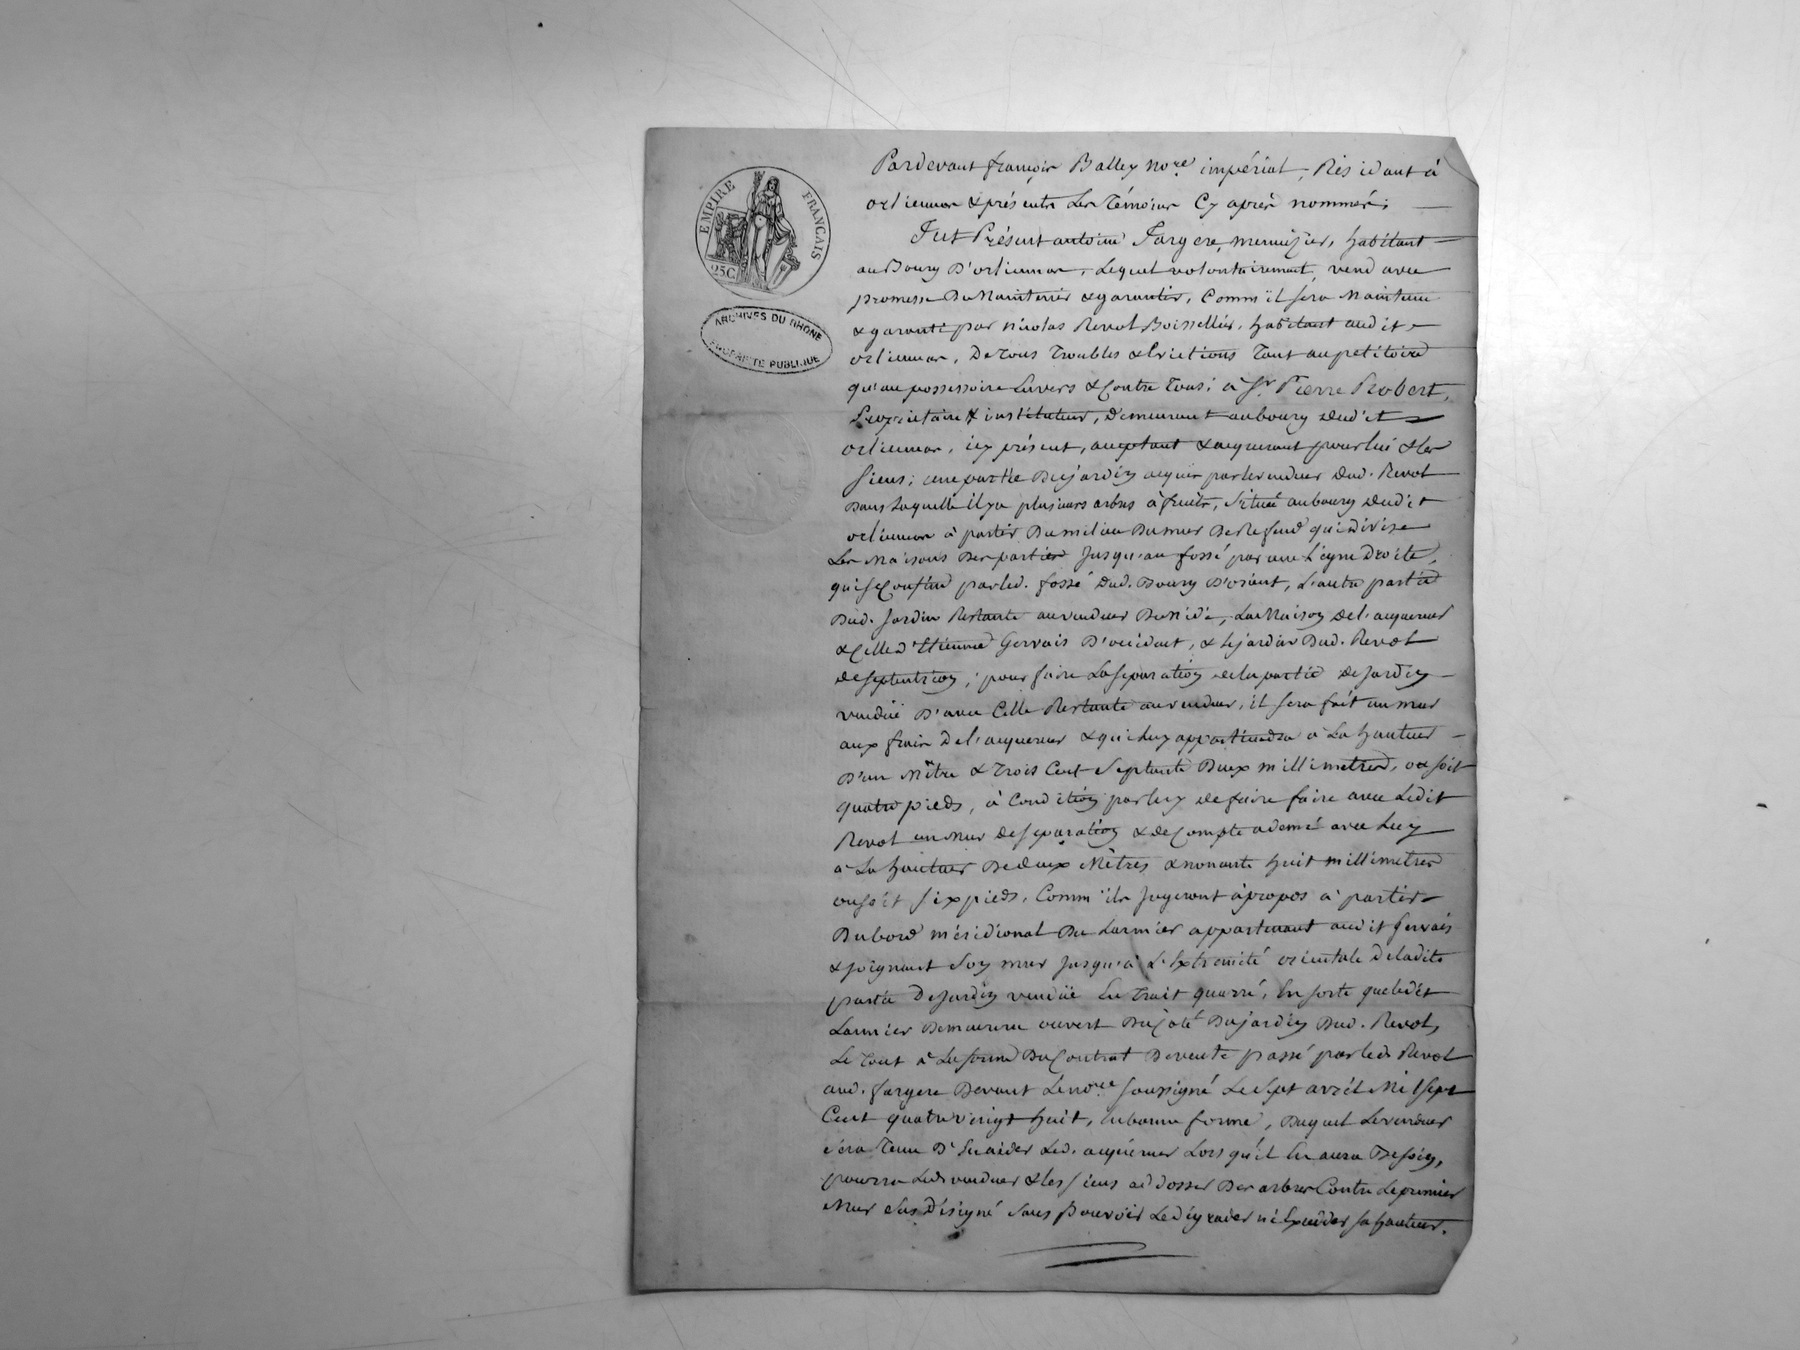 EMPIRE FRANÇAIS
25C
ARCHIVES DU RHONE
PROPRIÉTÉ PUBLIQUE
Pardevant françois Balley no.re impérial, Résidant à
orliennas & présents Les Témoins Cy après nommés;
Fut Présent antoine Fargere, menuizier, habitant
au Bourg D'orliennas, Lequel volontairement, vend avec
promesse De Maintenir & garantir, Comm'il sera Maintenu
& garanti par nicolas Revol Boisselier, habitant audit
orliennas, De Tous Troubles & Evictions Tant au petitoire
qu'au possessoire Envers & Contre Tous; à Sr. Pierre Robert,
Propriétaire & instituteur, Demeurant au bourg dudit
orliennas, icy présent, acceptant & acquerant pour lui & les
siens; une partie Du jardin acquis par le vendeur dud. Revol
Dans Laquelle il y a plusieurs arbres à fruits, Situé au bourg dudit
orliennas à partir Du milieu Du mur De Refend qui divise
Les Maisons Des parties Jusqu'au fossé par une Ligne Droite,
qui se Confine par led. fossé dud. Bourg D'orient, L'autre partie
Dud. Jardin Restante au vendeur De midi, La Maison de l'acquereur
& Celle d'Etienne Gervais D'occident, & le jardin Dud. Revol
de septentrion; pour faire La séparation de la partie de Jardin
vendüe D'avec Celle Restante au vendeur, il sera fait un mur
aux frais De l'acquereur & qui luy appartiendra à La hauteur
D'un Mêtre & Trois Cent Septante Deux millimetres, ou soit
quatre pieds, à Condition par luy de faire faire avec Ledit
Revol un Mur de séparation & de Compte a demi avec Luy
à La hauteur De deux Mêtres & nonante huit millimetres
ou soit six pieds, Comm'ils Jugeront à propos à partir
Du bord méridional Du Larmier appartenant audit Gervais
& joignant Son mur Jusqu'à L'Extremité orientale De ladite
partie De Jardin vendüe En Trait quarré, En sorte que ledit
Larmier Demeurera ouvert Du Côté Du jardin Dud. Revol,
Le Tout à La forme Du Contrat De vente passé par led. Revol
aud. fargere Devant Le no.re soussigné Le Sept avril Mil Sept
Cent quatre vingt huit, En bonne forme, Duquel Le vendeur
sera Tenu D'En aider Led. acquereur Lors qu'il En aura Besoin,
pourra Led. vendeur & les siens addosser Des arbres Contre Le premier
Mur Sus Désigné Sans Pouvoir Le dégrader ni Excéder sa hauteur.